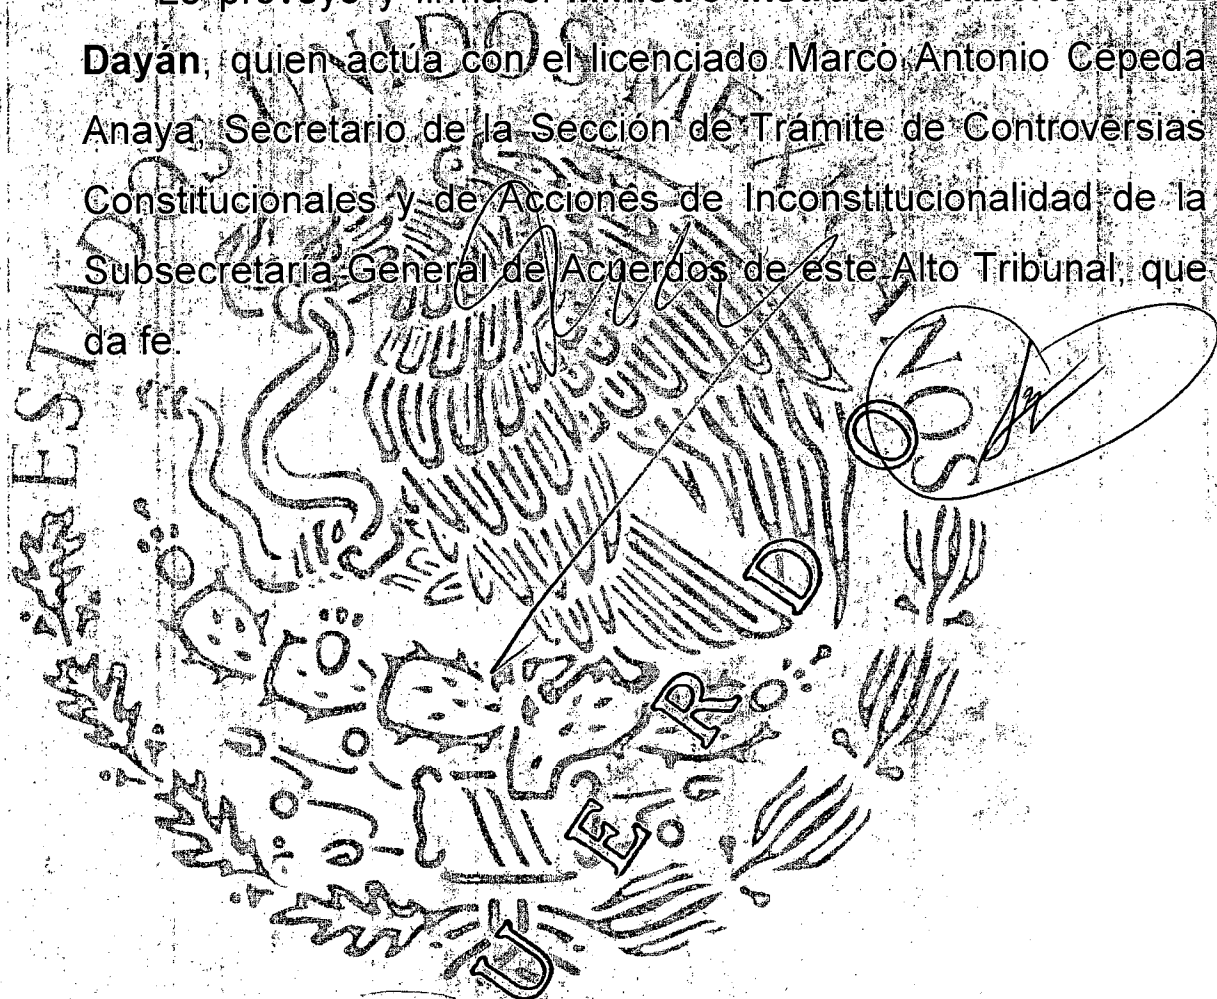 Lo proveyó y firma el Ministro instructor Alberto
Dayán, quien actúa con el licenciado Marco Antonio Cepeda
Anaya, Secretario de la Sección de Trámite de Controversias
Constitucionales y de Acciones de Inconstitucionalidad de la
Subsecretaría General de Acuerdos de este Alto Tribunal, que
da fe.
ESTADOS UNIDOS MEXICANOS
U E R D O